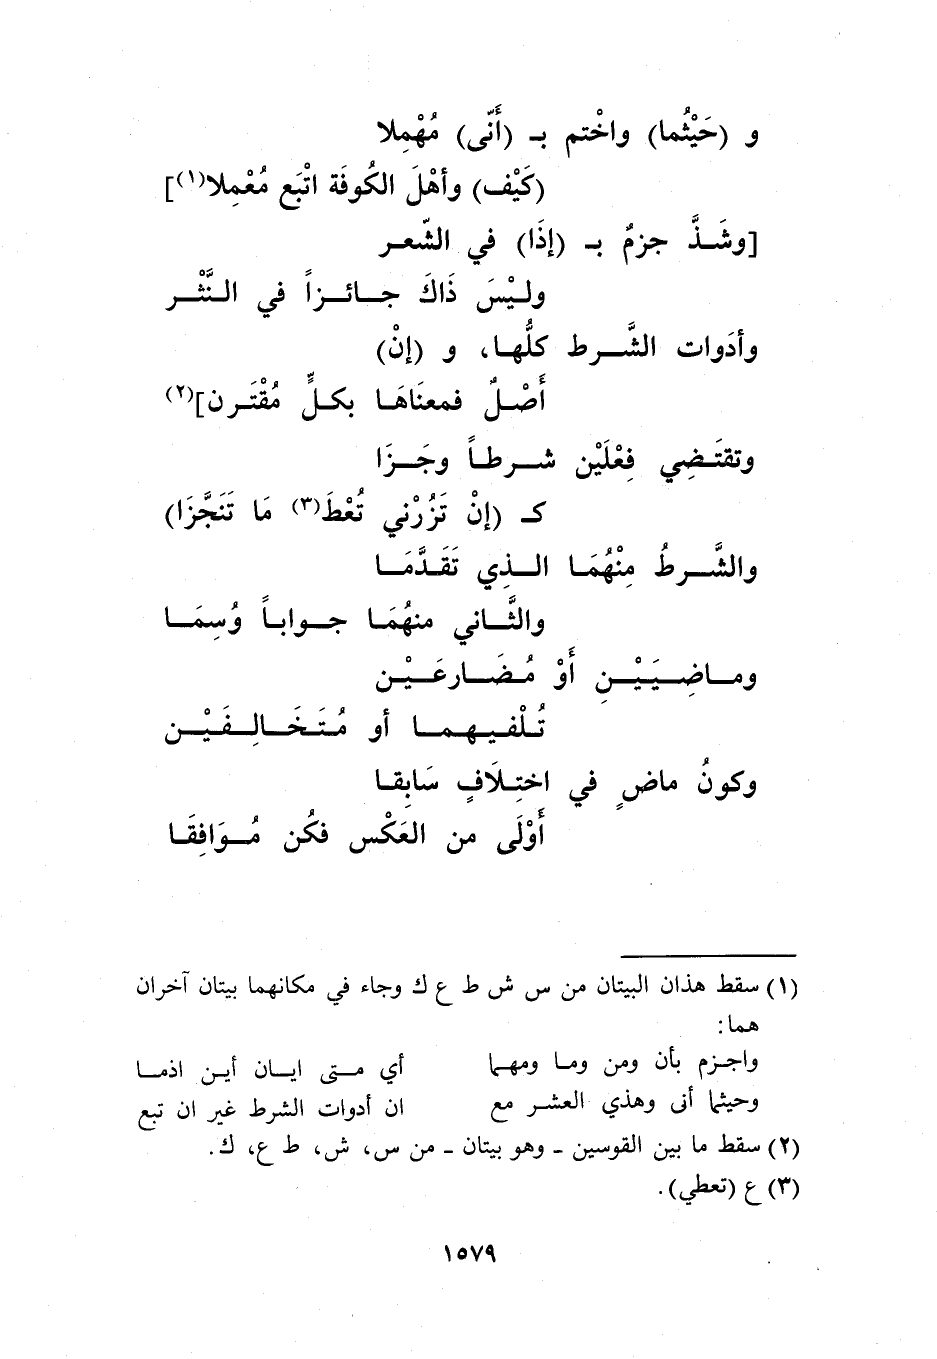 و (حَيْثُما) واخْتم بـ (أَنّى) مُهْمِلا
(كَيْف) وأهْلَ الكُوفَة اتْبَع مُعْمِلا(١)]
[وشَــذَّ جزمٌ بـ (إذَا) في الشّعـر
ولـيْسَ ذَاكَ جـائـزاً في الـنَّثْـر
وأدَوات الشَّـرط كلُّهـا، و (إنْ)
أَصْـلٌ فمعنَاهَـا بكـلٍّ مُقْتَـرن](٢)
وتقتَـضِي فِعْلَيْن شـرطـاً وجَـزَا
كـ (إنْ تَزُرْني تُعْطَ(٣) مَا تَنَجَّزَا)
والشَّـرطُ مِنْهُمَـا الـذِي تَقَـدَّمَـا
والثَّـاني منهُمَـا جـوابـاً وُسِمَـا
ومـاضِـيَيْـنِ أَوْ مُـضَـارعَـيْـن
تُـلْفـيـهمـا أو مُـتَـخَـالِـفَـيْـن
وكونُ ماضٍ في اختِـلَافٍ سَابِقـا
أَوْلَى من العَكْس فكُن مُـوَافِقَـا
(١) سقط هذان البيتان من س ش ط ع ك وجاء في مكانهما بيتان آخران
هما:
واجـزم بأن ومن ومـا ومهـا أي مـتى ايـان أيـن اذمـا
وحيثما أنى وهذي العشـر مع ان أدوات الشرط غير ان تبع
(٢) سقط ما بين القوسين ـ وهو بيتان ـ من س، ش، ط ع، ك.
(٣) ع (تعطي).
١٥٧٩